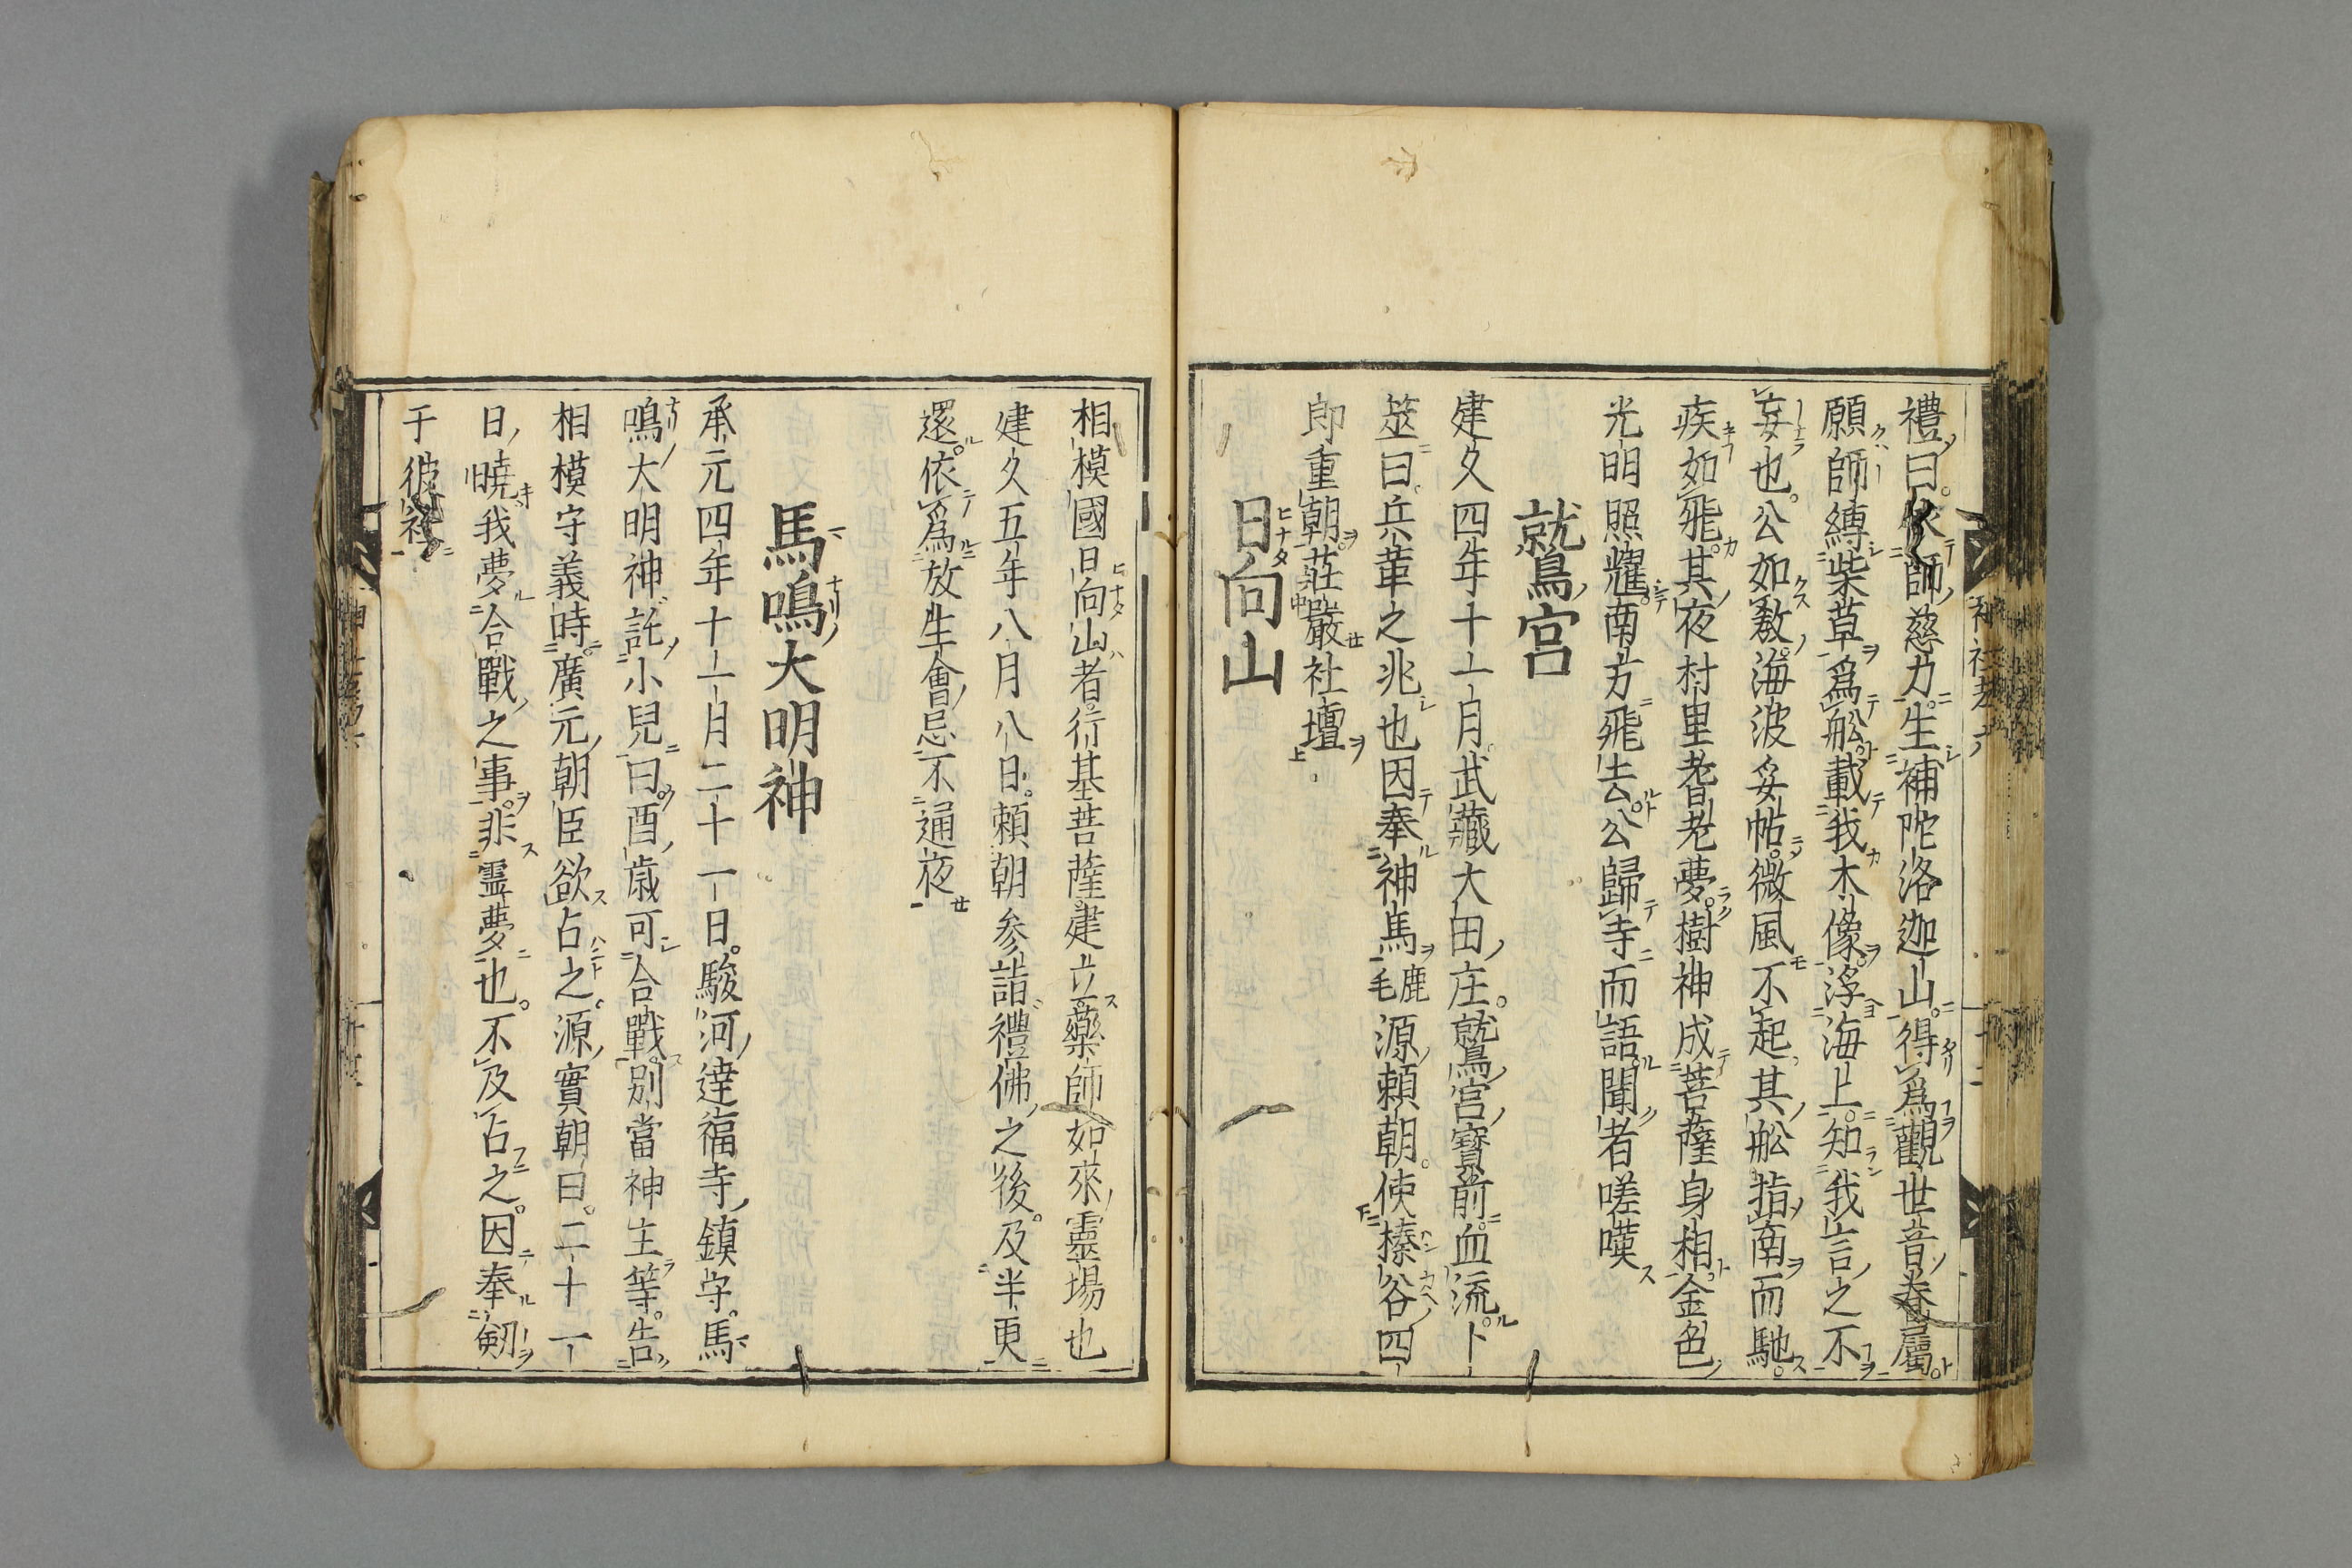 禮曰依師慈力生補陀洛迦山得爲觀世音眷屬
願師縛柴草爲舩載我木像浮海上知我言之不
妄也公如敎海波妥帖微風不起其舩指南而馳
疾如飛其夜村里耆老夢樹神成菩薩身相金色
光明照耀南方飛去公歸寺而語聞者嗟嘆
鷲宮
建久四年十一月武藏大田庄鷲宮寳前血流卜
筮曰兵革之兆也因奉神馬鹿毛源頼朝使榛谷四
郎重朝莊嚴社壇
日向山
相模國日向山者行基菩薩建立藥師如來靈場也
建久五年八月八日頼朝参詣禮佛之後及半更
還依爲放生會忌不通夜
馬鳴大明神
承元四年十一月二十一日駿河達福寺鎮守馬
鳴大明神託小兒曰酉歳可合戰別當神主等告
相模守義時廣元朝臣欲占之源實朝曰二十一
日曉我夢合戰之事非霊夢也不及占之因奉剱
于彼社